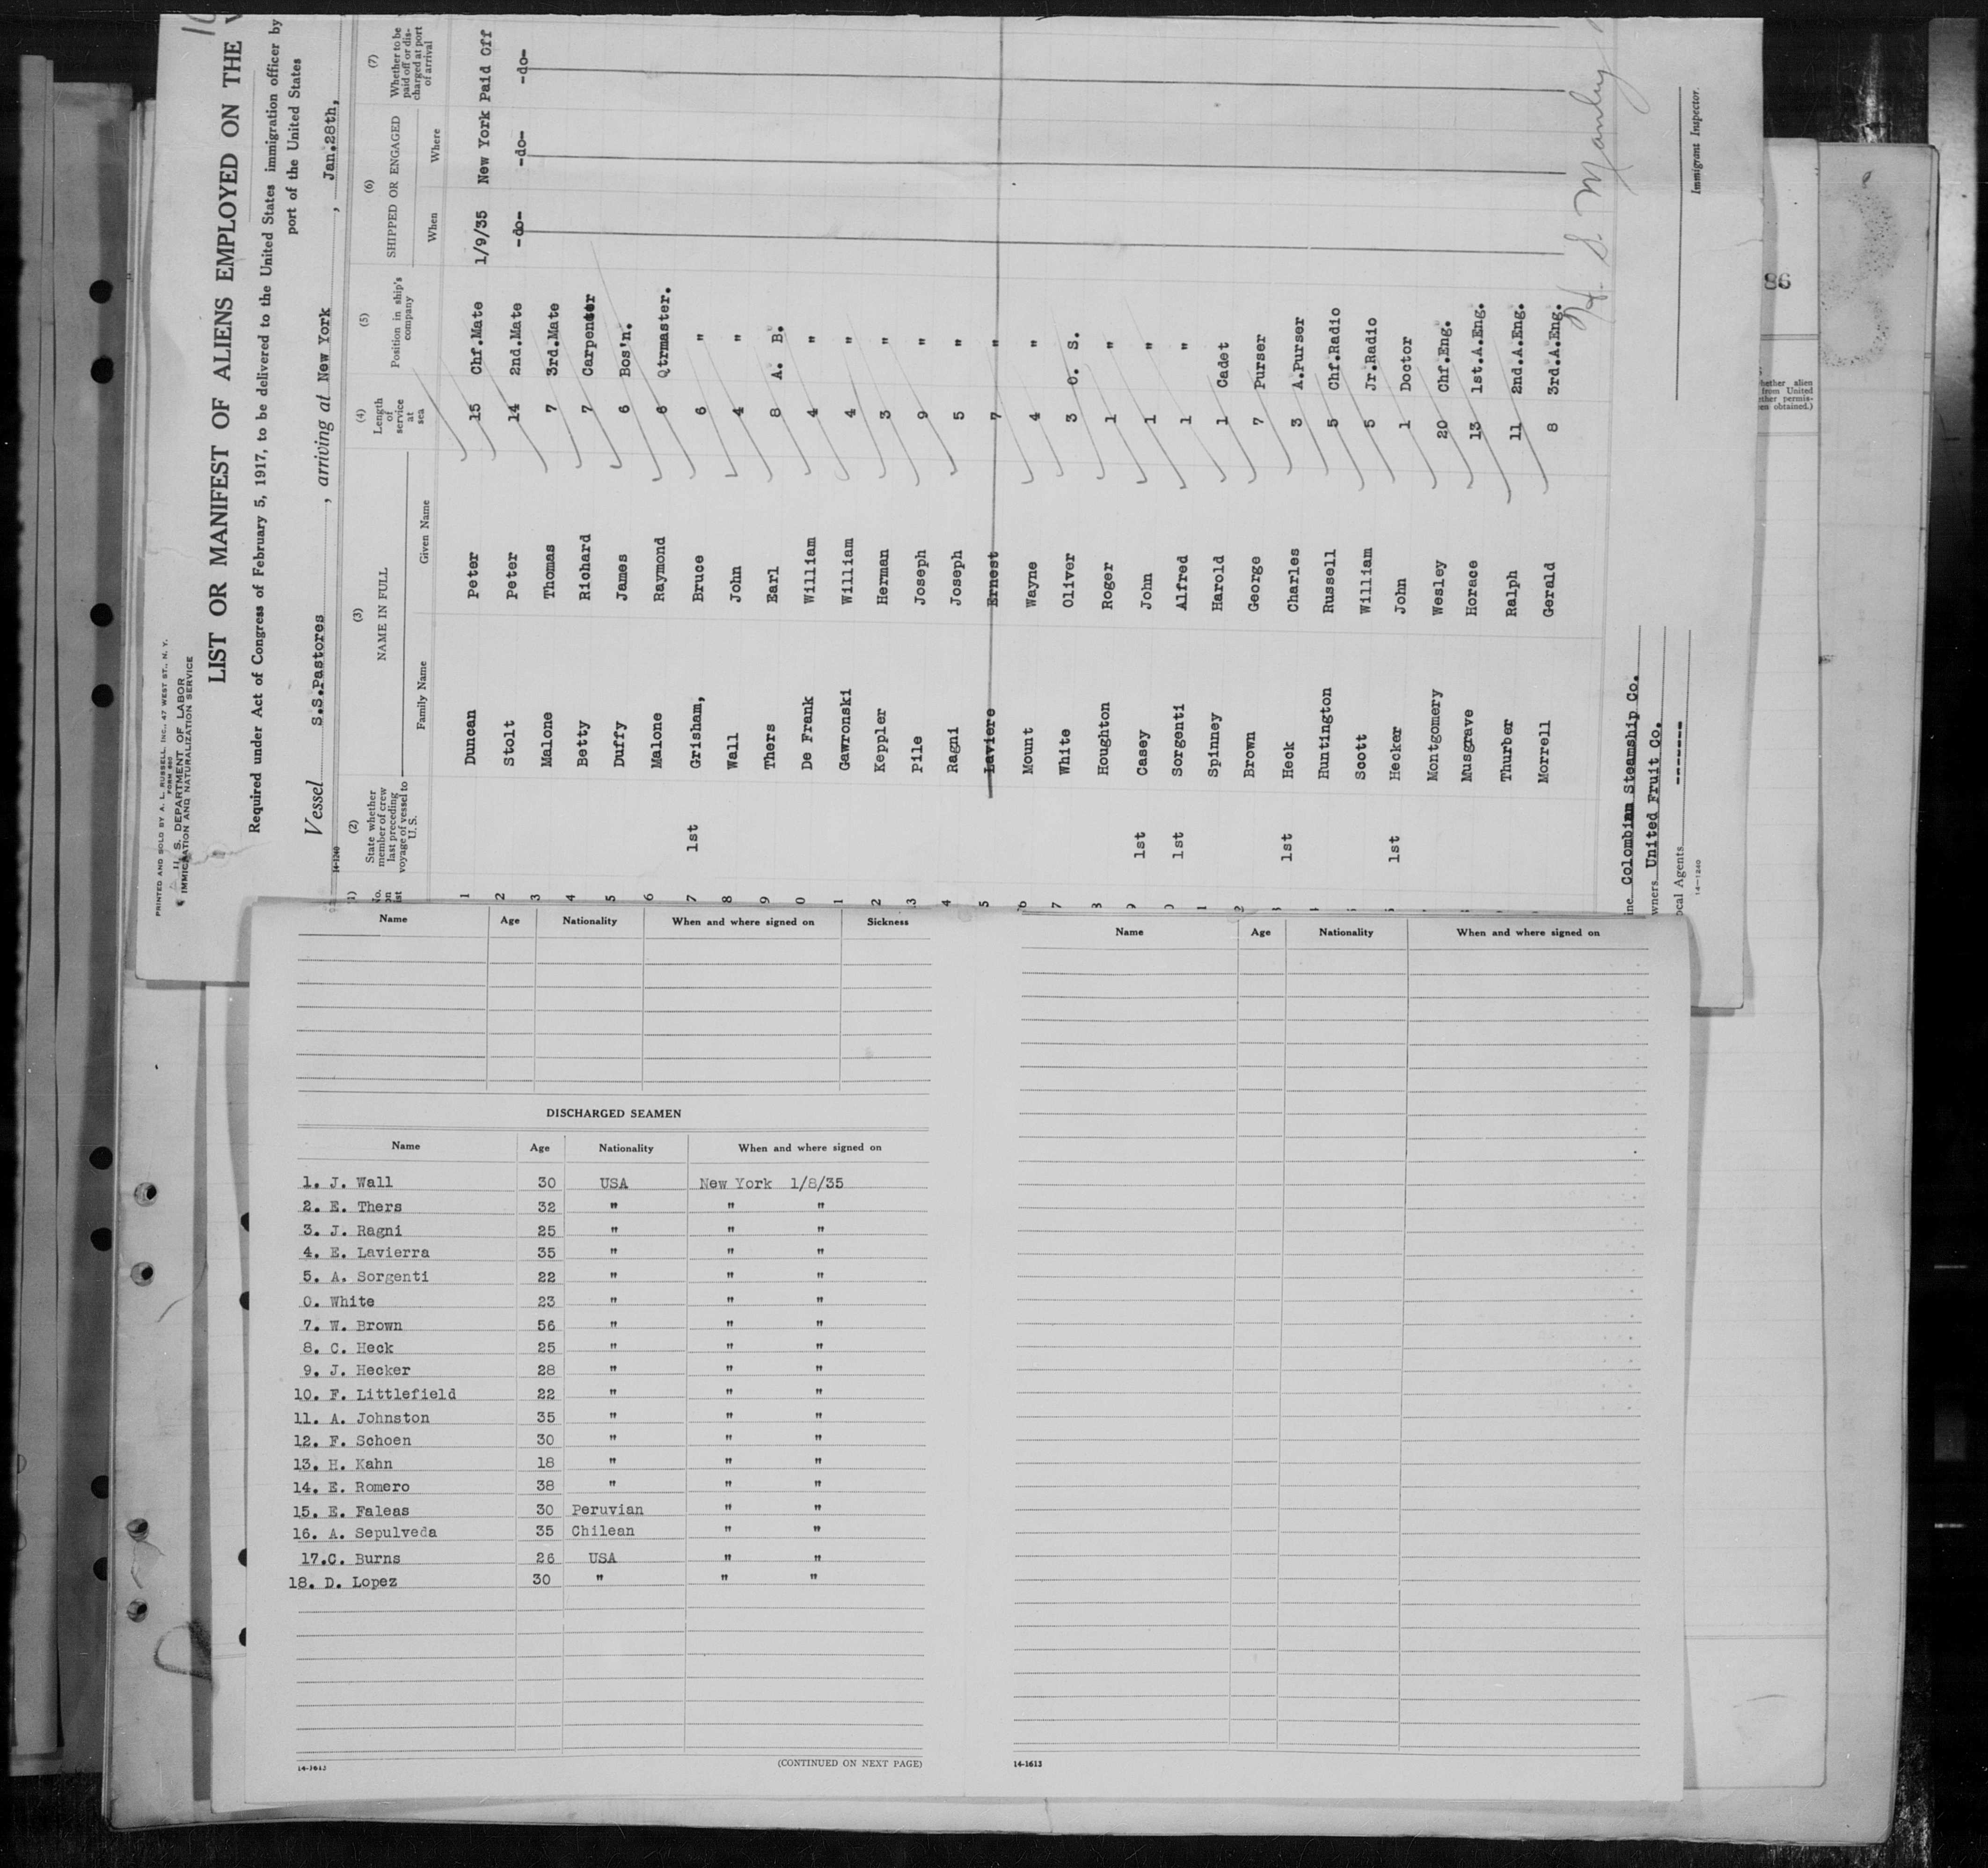 PRINTED AND SOLD BY A. L. RUSSELL, INC., 47 WEST ST., N. Y.
U. S. DEPARTMENT OF LABOR
IMMIGRATION AND NATURALIZATION SERVICE
LIST OR MANIFEST OF ALIENS EMPLOYED ON THE
Required under Act of Congress of February 5, 1917, to be delivered to the United States immigration officer by
port of the United States
Vessel S.S.Pastores, arriving at New York, Jan.28th,
14-1240
(1) (2) (3) (4) (5) (6) (7)
State whether member of crew last preceding voyage of vessel to U. S.
NAME IN FULL
Family Name Given Name
Length of service at sea
Position in ship's company
SHIPPED OR ENGAGED
When Where
Whether to be paid off or discharged at port of arrival
1 Duncan Peter 15 Chf.Mate 1/9/35 New York Paid Off
2 Stolt Peter 14 2nd.Mate -do- -do- -do-
3 Malone Thomas 7 3rd.Mate
4 Betty Richard 7 Carpenter
5 Duffy James 6 Bos'n.
6 Malone Raymond 6 Qtrmaster.
7 1st Grisham, Bruce 6 "
8 Wall John 4 "
9 Thers Earl 8 A. B.
0 De Frank William 4 "
1 Gawronski William 4 "
2 Keppler Herman 3 "
3 Pile Joseph 9 "
4 Ragni Joseph 5 "
5 Laviere Ernest 7 "
6 Mount Wayne 4 "
7 White Oliver 3 O. S.
8 Houghton Roger 1 "
9 1st Casey John 1 "
0 1st Sorgenti Alfred 1 "
1 Spinney Harold 1 Cadet
2 Brown George 7 Purser
1st Heck Charles 3 A.Purser
Huntington Russell 5 Chf.Radio
Scott William 5 Jr.Radio
1st Hecker John 1 Doctor
Montgomery Wesley 20 Chf.Eng.
Musgrave Horace 13 1st.A.Eng.
Thurber Ralph 11 2nd.A.Eng.
Morrell Gerald 8 3rd.A.Eng.
Colombian Steamship Co.
United Fruit Co.
Local Agents -------
14-1240
S. Manley
Immigrant Inspector.
86
Name Age Nationality When and where signed on Sickness
DISCHARGED SEAMEN
Name Age Nationality When and where signed on
1. J. Wall 30 USA New York 1/8/35
2. E. Thers 32 " " "
3. J. Ragni 25 " " "
4. E. Lavierra 35 " " "
5. A. Sorgenti 22 " " "
0. White 23 " " "
7. W. Brown 56 " " "
8. C. Heck 25 " " "
9. J. Hecker 28 " " "
10. F. Littlefield 22 " " "
11. A. Johnston 35 " " "
12. F. Schoen 30 " " "
13. H. Kahn 18 " " "
14. E. Romero 38 " " "
15. E. Faleas 30 Peruvian " "
16. A. Sepulveda 35 Chilean " "
17.C. Burns 26 USA " "
18. D. Lopez 30 " " "
14-1613
(CONTINUED ON NEXT PAGE)
Name Age Nationality When and where signed on
14-1613